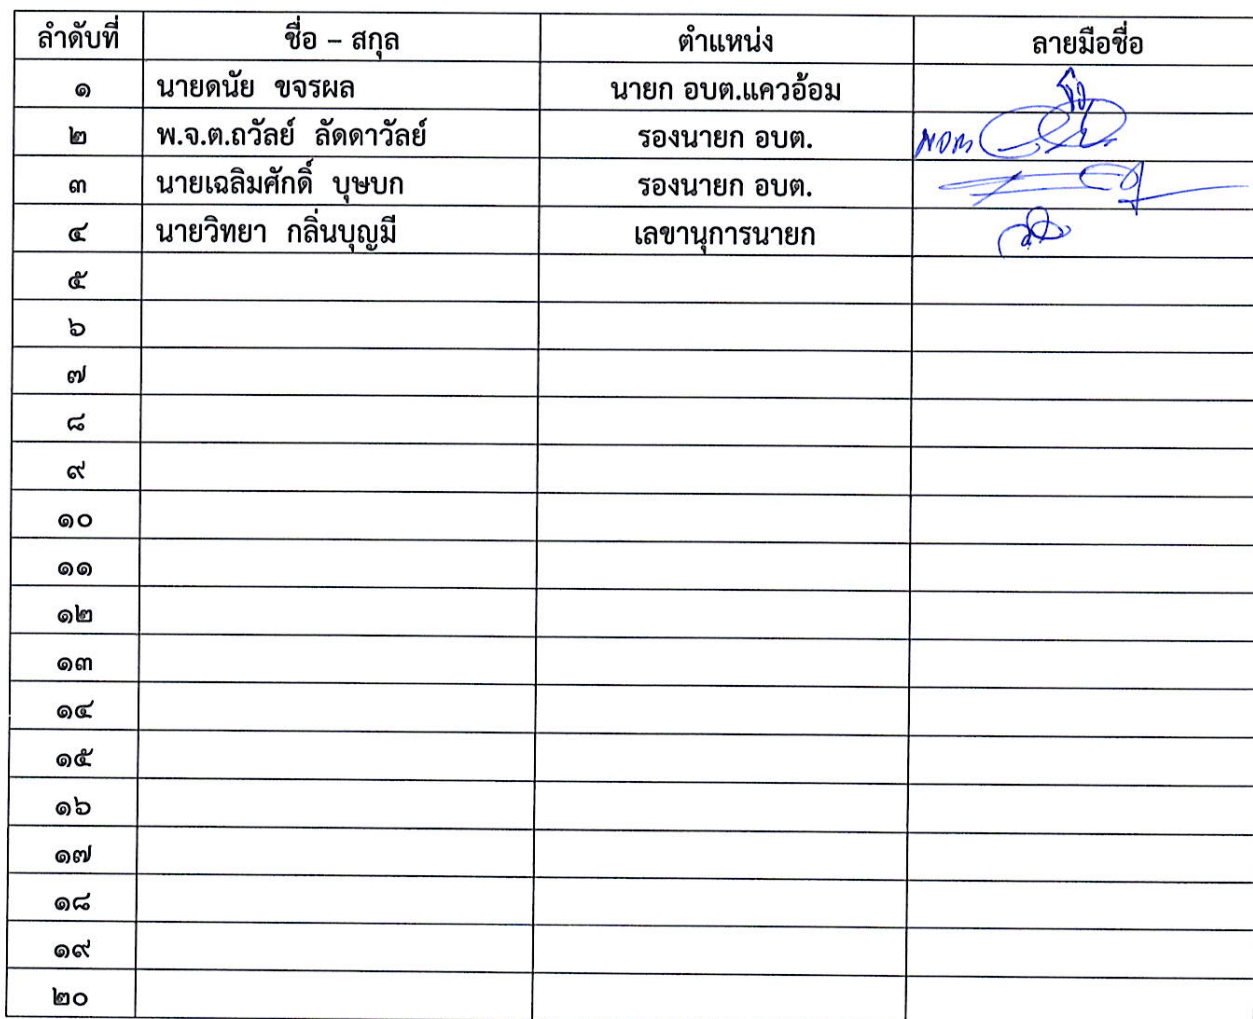 ลำดับที่ ชื่อ – สกุล ตำแหน่ง ลายมือชื่อ
๑ นายดนัย ขจรผล นายก อบต.แควอ้อม
๒ พ.จ.ต.ถวัลย์ ลัดดาวัลย์ รองนายก อบต.
๓ นายเฉลิมศักดิ์ บุษบก รองนายก อบต.
๔ นายวิทยา กลิ่นบุญมี เลขานุการนายก
๕
๖
๗
๘
๙
๑๐
๑๑
๑๒
๑๓
๑๔
๑๕
๑๖
๑๗
๑๘
๑๙
๒๐